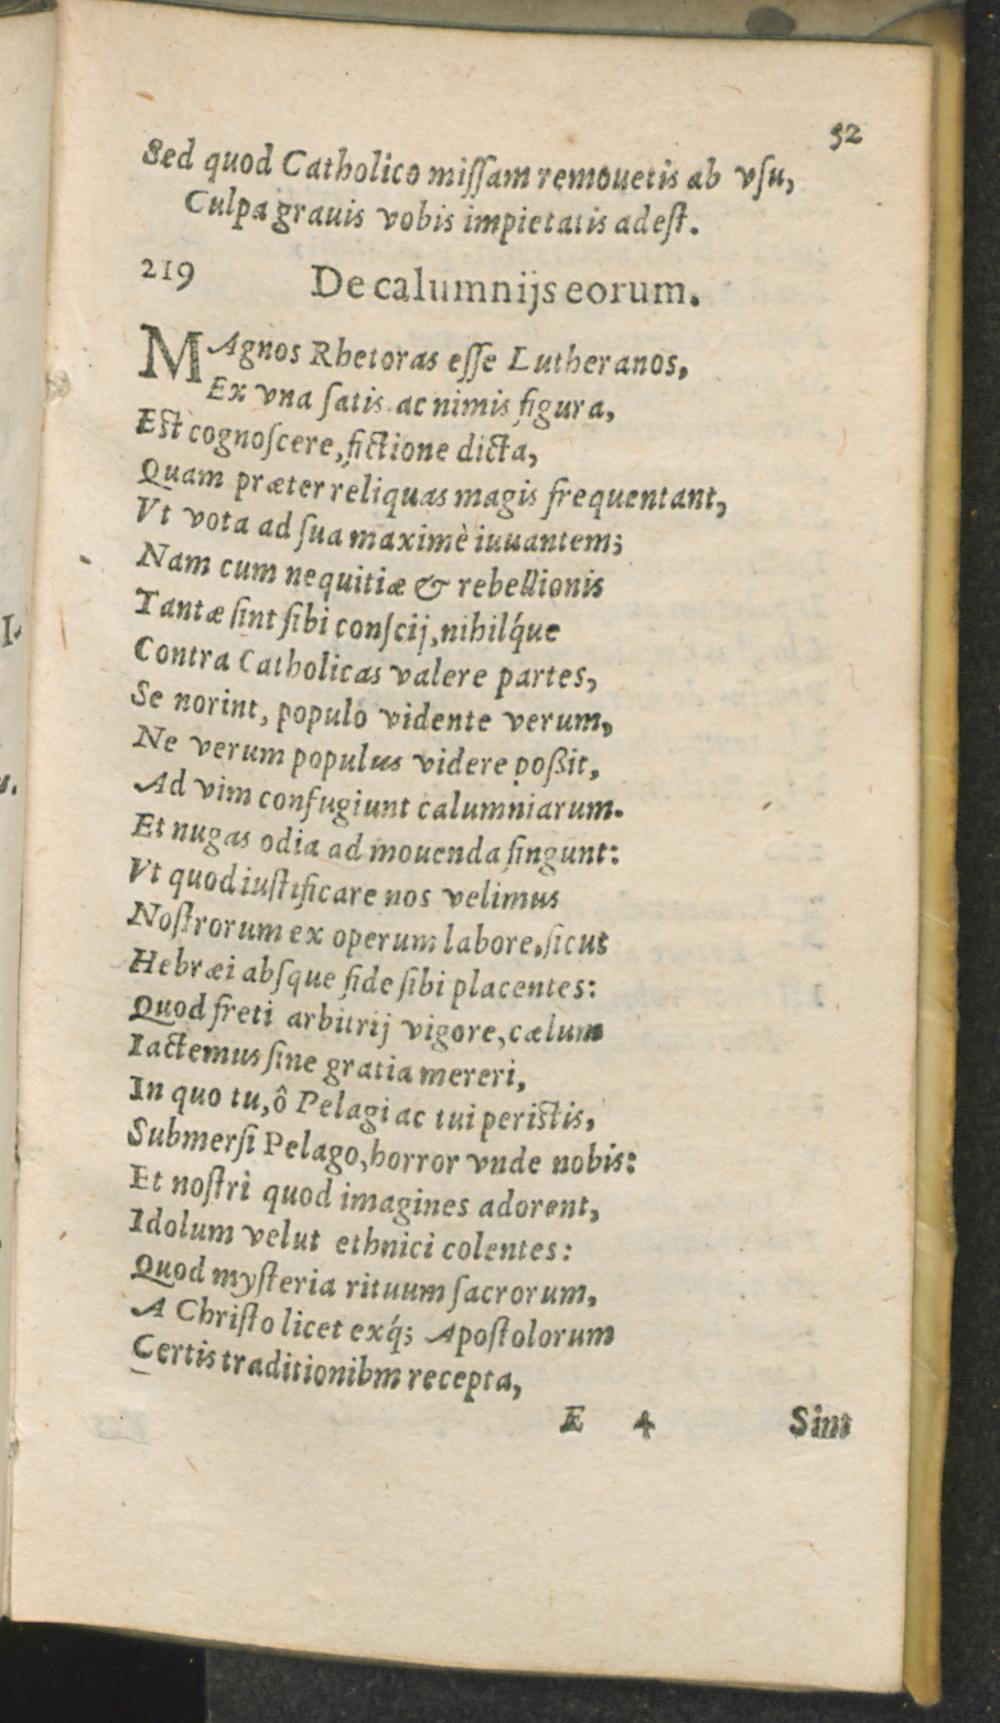 52
Sed quod Catholico miſſam remouetis ab vſu,
Culpa grauis vobis impietatis adeſt.
219 De calumnijs eorum.
MAgnos Rhetoras eſſe Lutheranos,
Ex vna ſatis ac nimis figura,
Eſt cognoſcere, fictione dicta,
Quam præter reliquas magis frequentant,
Vt vota ad ſua maximè iuuantem;
Nam cum nequitiæ & rebellionis
Tantæ ſint ſibi conſcij, nihilq́ue
Contra Catholicas valere partes,
Se norint, populo vidente verum,
Ne verum populus videre poßit,
Ad vim confugiunt calumniarum.
Et nugas odia ad mouenda fingunt:
Vt quod iuſtificare nos velimus
Noſtrorum ex operum labore, ſicut
Hebræi abſque fide ſibi placentes:
Quod freti arbitrij vigore, cælum
Iactemus ſine gratia mereri,
In quo tu, ô Pelagi ac tui periſtis,
Submerſi Pelago, horror vnde nobis:
Et noſtri quod imagines adorent,
Idolum velut ethnici colentes:
Quod myſteria rituum ſacrorum,
A Chriſto licet exq́; Apoſtolorum
Certis traditionibm recepta,
E 4 Sint